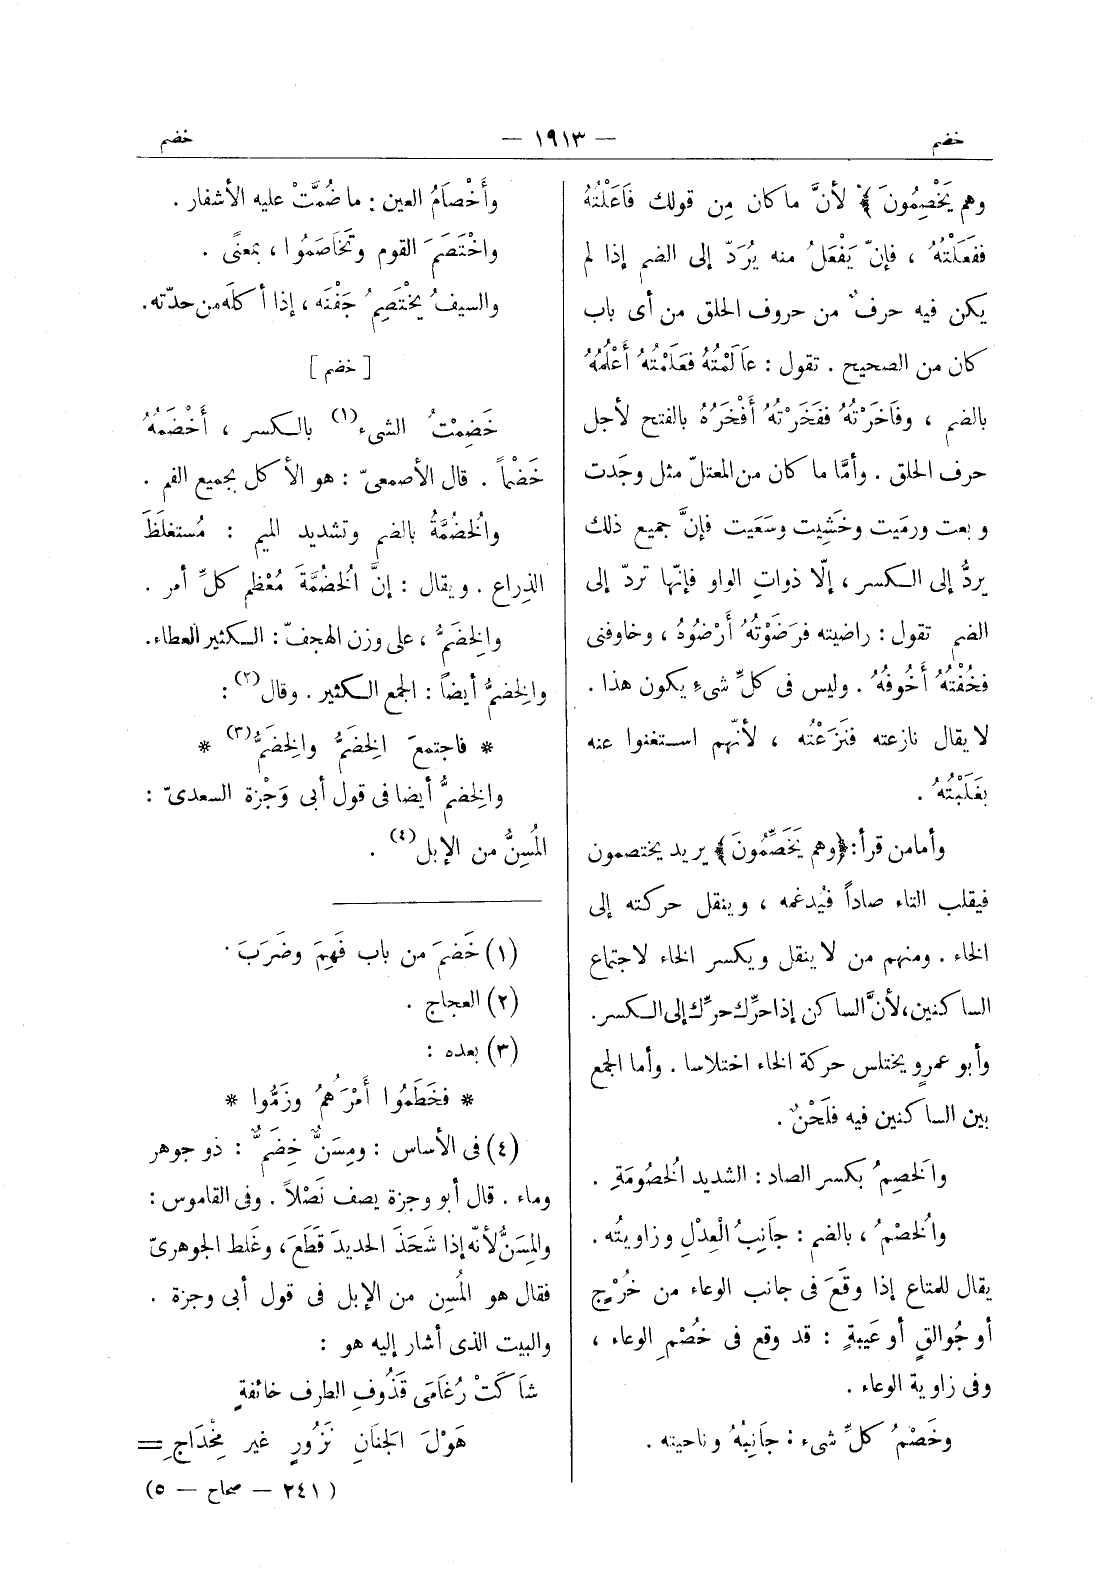 خضم
— ١٩١٣ —
خضم
وهم يَخْصِمُونَ﴾ لأنَّ ما كان مِن قولك فَاعَلْتُهُ
ففَعَلْتُهُ ، فإنّ يَفْعَلُ منه يُرَدّ إلى الضم إذا لم
يكن فيه حرفٌ من حروف الحلق من أى باب
كان من الصحيح . تقول : عاَلَمْتُهُ فعَلَمْتُهُ أَعْلُمُهُ
بالضم ، وفَاخَرْتُهُ ففَخَرْتُهُ أَفْخَرُهُ بالفتح لأجل
حرف الحلق . وأمَّا ما كان من المعتلّ مثل وجَدت
وبعت ورمَيت وخشِيت وسَعَيت فإنَّ جميع ذلك
يردُّ إلى الكسر ، إلّا ذواتِ الواو فإنّها تردّ إلى
الضم تقول : راضيته فرَضَوْتُهُ أَرْضُوُهُ ، وخاوفنى
فخُفْتُهُ أَخُوفُهُ . وليس فى كلِّ شىءٍ يكون هذا .
لا يقال نازعته فنَزَعْتُه ، لأنّهم استغنوا عنه
بغَلَبْتُهُ .
وأما من قرأ : ﴿وهم يَخَصِّمُونَ﴾ يريد يختصمون
فيقلب التاء صاداً فيُدغمه ، وينقل حركته إلى
الخاء . ومنهم من لا ينقل ويكسر الخاء لاجتماع
الساكنين، لأنَّ الساكن إذا حرِّك حرِّك إلى الكسر.
وأبو عمرٍو يختلس حركة الخاء اختلاسا . وأما الجمع
بين الساكنين فيه فلَحْنٌ .
والَخصِمُ بكسر الصاد : الشديد الُخصُومَةِ .
والُخصْمُ ، بالضم : جَانِبُ الْعِدْلِ وزاويتُه .
يقال للمتاع إذا وقَعَ فى جانب الوعاء من خُرْجٍ
أو جُوالقٍ أو عَيبةٍ : قد وقع فى خُصْمِ الوعاء ،
وفى زاوية الوعاء .
وخُصْمُ كلِّ شىء : جاَنِبُهُ وناحيته .
وأَخْصَامُ العين : ما ضُمَّتْ عليه الأشفار .
واخْتَصَمَ القوم وتَخَاصَمُوا ، بمعنًى .
والسيفُ يَخْتَصِمُ جَفْنَه ، إذا أكلَه من حدّته.
[ خضم ]
خَضِمْتُ الشىء(١) بالكسر ، أَخْضَمُهُ
خَضْماً . قال الأصمعىّ : هو الأكل بجميع الفم .
والُخضُمَّةُ بالضم وتشديد الميم : مُستغلَظَ
الذِراع . ويقال : إنَّ الُخضُمَّةَ مُعْظم كلِّ أمر .
والِخضَمُّ ، على وزن الهجفّ : الكثير العطاء.
والِخضمُّ أيضاً : الجمع الكثير . وقال(٢) :
* فاجتمعَ الِخضَمُّ والِخضَمُّ(٣) *
والِخضمُّ أيضا فى قول أبى وَجْزة السعدىّ :
المُسِنُّ من الإبل(٤) .
(١) خَضمَ من باب فَهِمَ وضَرَبَ .
(٢) العجاج .
(٣) بعده :
* فخَطَمُوا أَمْرَهُمُ وزَمُّوا *
(٤) فى الأساس : ومِسَنٌّ خِضَمٌّ : ذو جوهر
وماء . قال أبو وجزة يصف نَصْلاً . وفى القاموس :
والمِسَنُّ لأنّه إذا شَحَذَ الحديدَ قَطَعَ، وغلط الجوهرىّ
فقال هو المُسِن من الإبل فى قول أبى وجزة .
والبيت الذى أشار إليه هو :
شاَكَتْ رُغَامَى قَذُوفِ الطرف خائفةٍ
هَوْلَ الجنَانِ نَزُورٍ غير مِخْدَاجِ =
( ٢٤١ — صحاح — ٥)